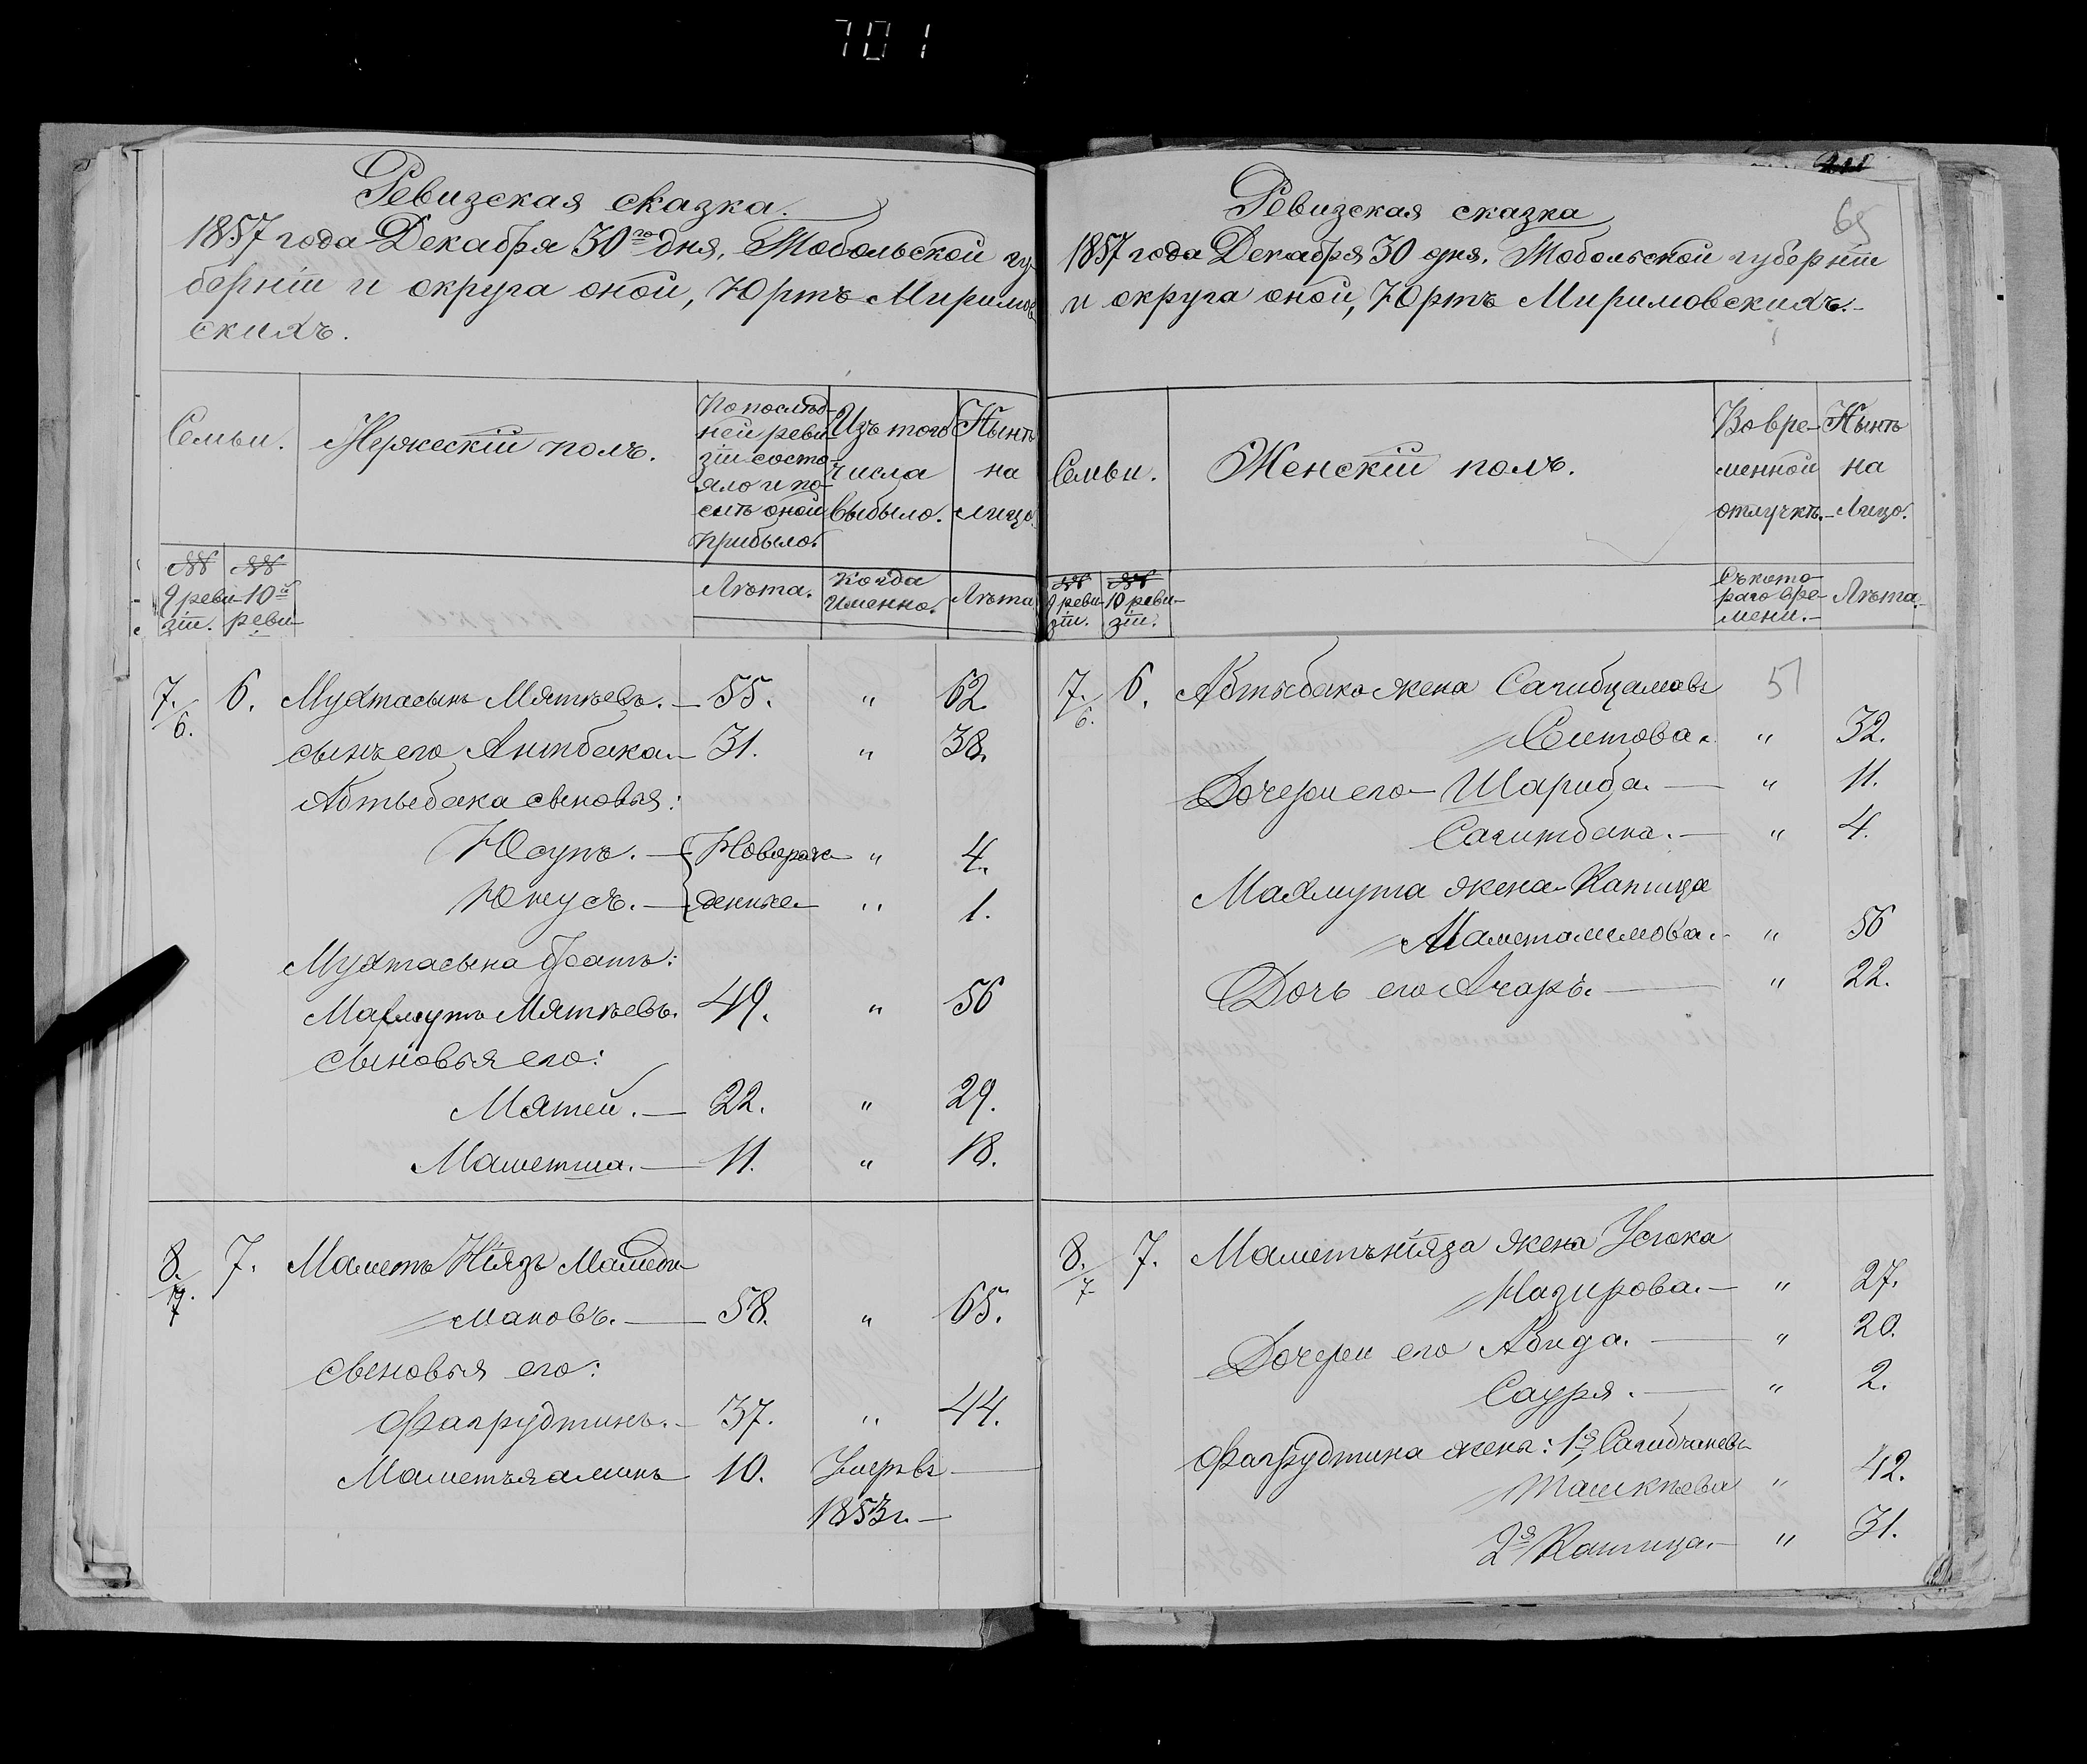 701
Ревизская сказка.
1857 года Декабря 30го дня, Тобольской гу-
берніи и округа оной, Юртъ Миримов-
скихъ.
Семьи.
Мужескій полъ.
По послѣд-
ней реви-
зіи состо-
яло и по-
слѣ оной
прибыло.
Изъ того
числа
выбыло.
Нынѣ
на
лицо.
№№
9 реви-
зіи.
№№
10й
реви-
Лѣта.
Когда
именно.
Лѣта
7./6. 6. Мухтасынъ Мяткевъ. — 55. " 62.
сынъ его Аитбака — 31. " 38.
Абтыбака сыновья:
Юсупъ. — Новорож- " 4.
Юнусъ. — денные " 1.
Мухтасына братъ:
Махмутъ Мяткевъ. 49. " 56
сыновья его:
Мятей. — 22. " 29.
Маметша. — 11. " 18.
8./7. 7. Маметъ Ніязъ Мамеди-
мановъ. — 58. " 65.
сыновья его:
Фахрудтинъ. — 37. " 44.
Маметъямин 10. Умръ въ —
1853 г. —
Ревизская сказка
65
1857 года Декабря 30 дня, Тобольской губерніи
и округа оной, Юртъ Миримовскихъ. —
Семьи.
Женскій полъ.
Во вре-
менной
отлучкѣ. —
Нынѣ
на
Лицо.
№№
9 реви-
зіи.
№№
10 реви-
зіи.
Съ кото-
раго вре-
мени. —
Лѣта. —
7./6. 6. Абтыбака жена Сагибцамалъ 51
Сеитова. " 32.
Дочери его — Шариба. — " 11.
Сагитбана. — " 4.
Махмута жена — Капица
Маметалимова. — " 56
Дочь его Ачаръ. — " 22.
8./7 7. Маметъніяза жена Усюка
Назирова. — " 27.
Дочери его Абида. — " 20.
Сауря. — " 2.
Фахрудтина жены: 1я, Сагибчановъ
Ташкѣева " 42.
2я Капица. — " 31.